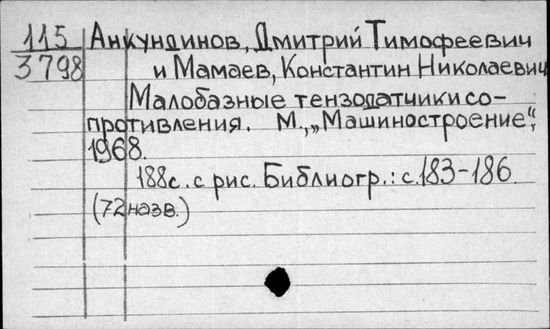 115 Анкундинов, Дмитрий Тимофеевич
3798 и Мамаев, Константин Николаевич
Малобазные тензодатчики со-
противления. М., „Машиностроение“,
1968.
188с. с рис. Библиогр.: с.183-186.
(72 назв.)